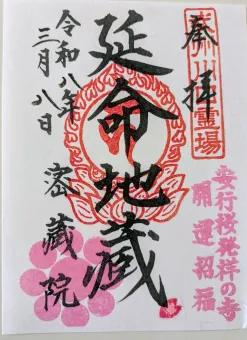 奉拝
延命地蔵
令和八年
三月八日
密蔵院
安行桜発祥の寺
開運招福